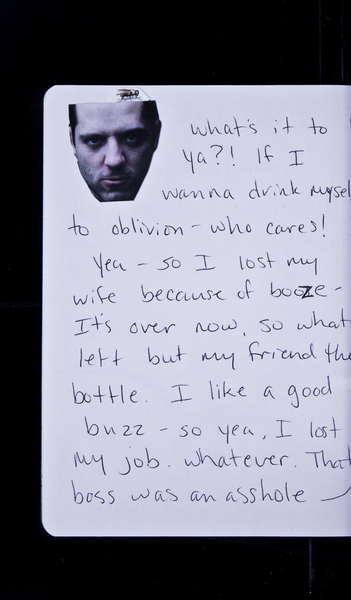 what's it to
ya?! If I
wanna drink mysel
to oblivion - who cares!
Yea - so I lost my
wife because of booze -
It's over now, so what
left but my friend the
bottle. I like a good
buzz - so yea, I lost
my job. whatever. That
boss was an asshole